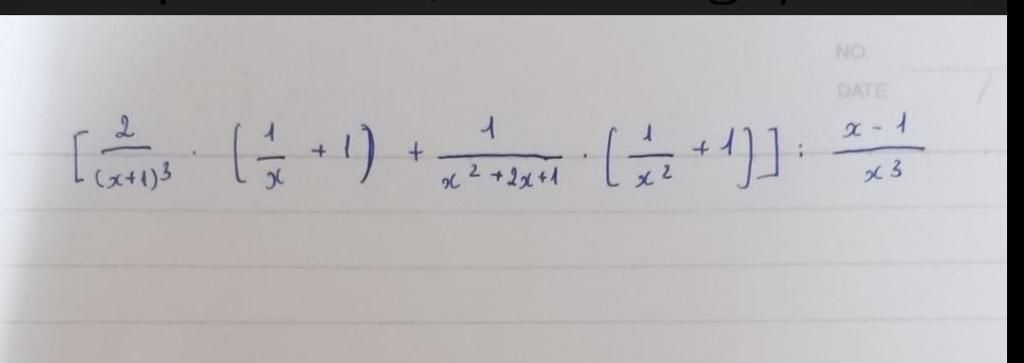 NO
DATE /
[2/(x+1)³ · (1/x + 1) + 1/(x² + 2x + 1) · (1/x² + 1)] : (x - 1)/x³